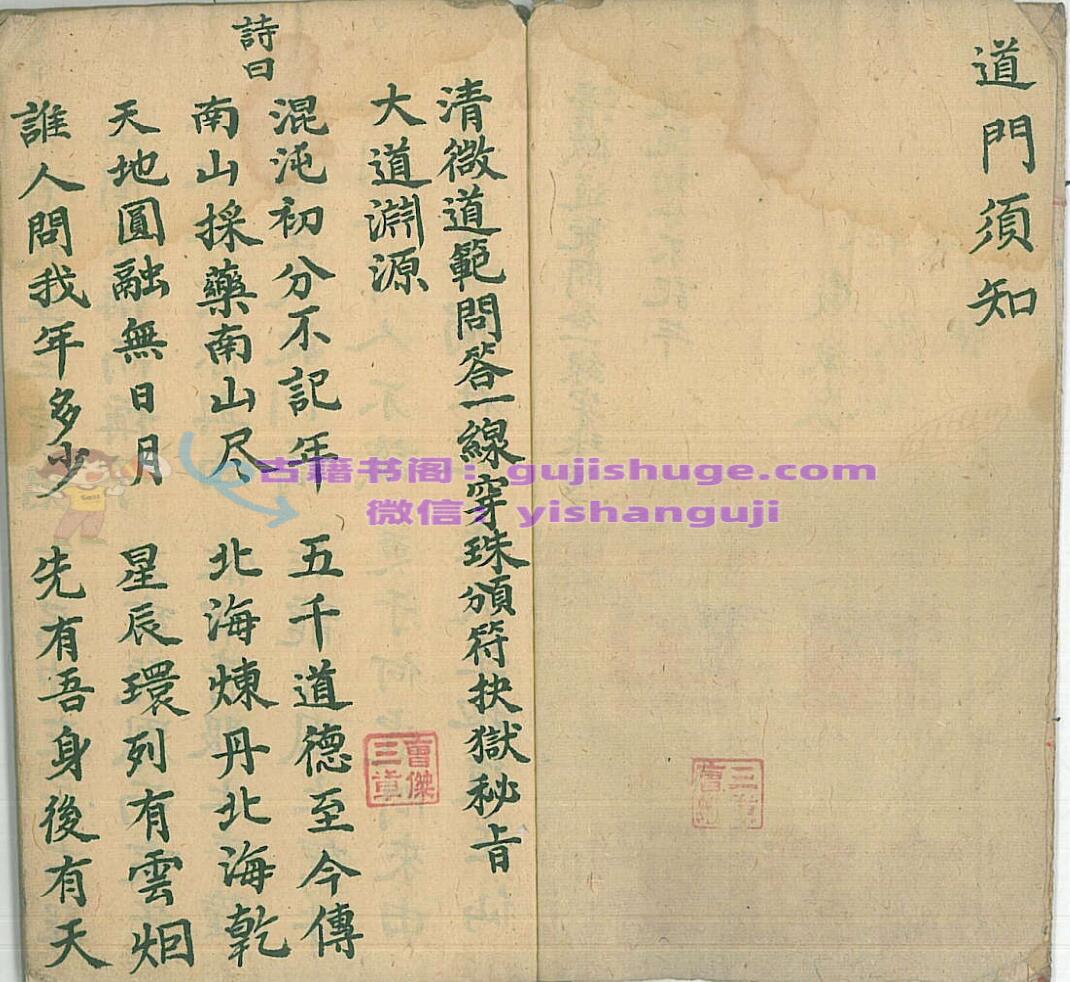 道門須知
清微道範問答一線穿珠頒符抉獄秘旨
大道淵源
詩曰
混沌初分不記年 五千道德至今傳
南山採藥南山尽 北海煉丹北海乾
天地圓融無日月 星辰環列有雲烟
誰人問我年多少 先有吾身後有天
曹傑
三真
古籍书阁：gujishuge.com
微信：yishanguji